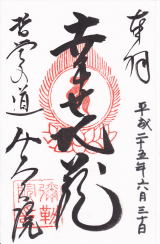 奉拝
平成二十五年六月三十日
幸せ地蔵
哲学の道
弥勒院